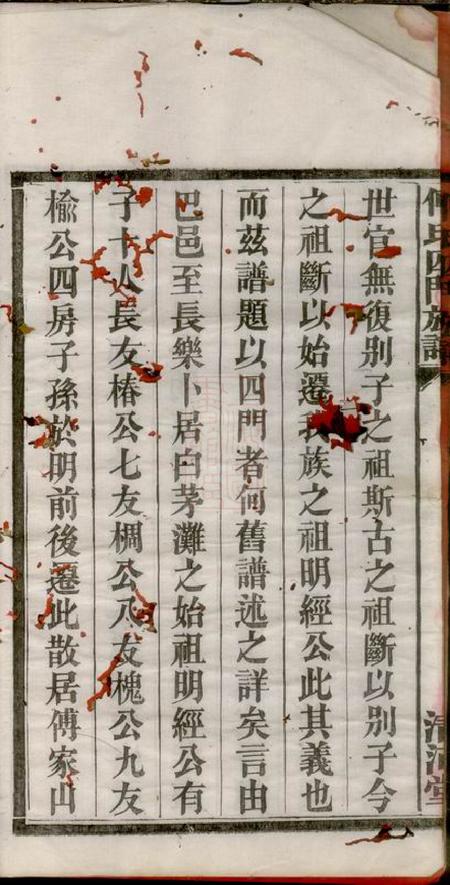 世官無復別子之祖斯古之祖斷以別子今
之祖斷以始遷我族之祖明經公此其義也
而茲譜題以四門者何舊譜述之詳矣言由
巴邑至長樂卜居白茅灘之始祖明經公有
子十人長友椿公七友櫚公八友槐公九友
榆公四房子孫於明前後遷此散居傅家山
氏四門族譜